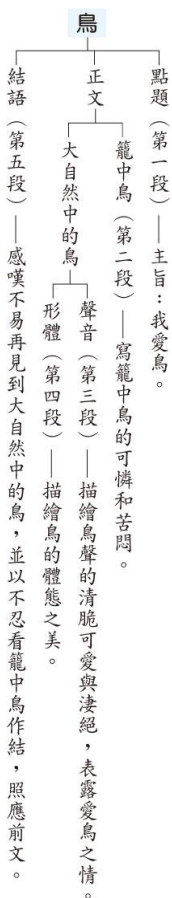 鳥
點題（第一段）——主旨：我愛鳥。
正文
籠中鳥（第二段）——寫籠中鳥的可憐和苦悶。
大自然中的鳥
聲音（第三段）——描繪鳥聲的清脆可愛與淒絕，表露愛鳥之情。
形體（第四段）——描繪鳥的體態之美。
結語（第五段）——感嘆不易再見到大自然中的鳥，並以不忍看籠中鳥作結，照應前文。